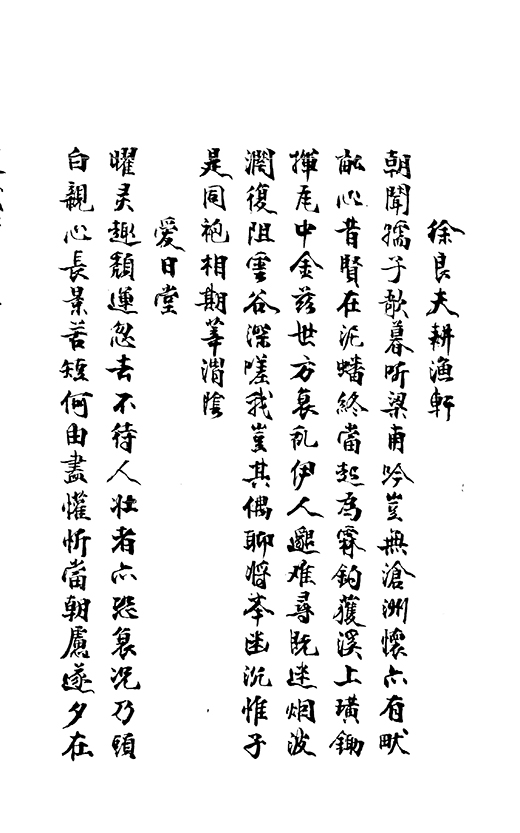 徐良夫耕漁軒
朝聞孺子歌暮听梁甫吟豈無滄洲懷亦有畎
畝心昔賢在泥蟠終當起為霖釣獲溪上璜鋤
揮瓦中金茲世方衰乱伊人邈难尋既迷烟波
濶復阻雲谷深嗟我豈其偶聊将荃幽沉惟子
是同袍相期莘渭陰
愛日堂
曜灵趣頹運忽去不待人壯者亦恐衰况乃頭
白親心長景苦短何由盡懽忻當朝慮遂夕在